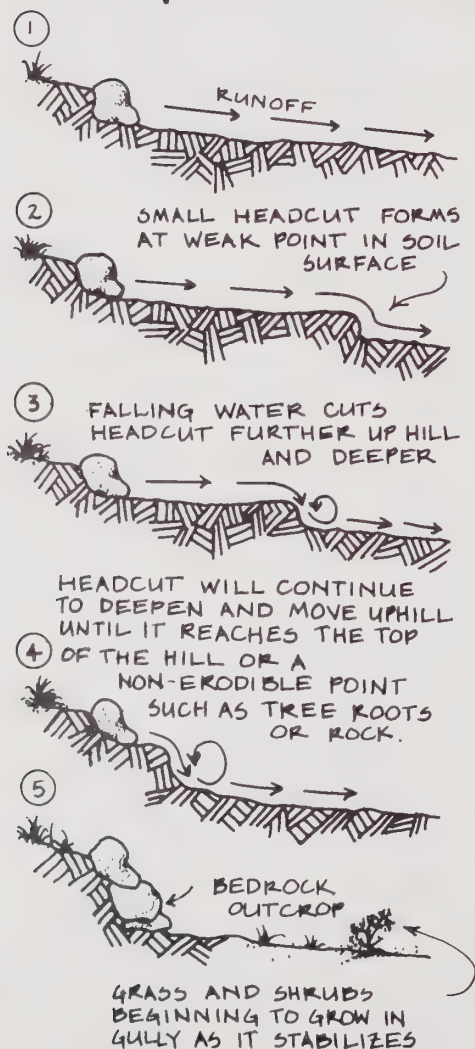 1
RUNOFF
2
SMALL HEADCUT FORMS
AT WEAK POINT IN SOIL
SURFACE
3
FALLING WATER CUTS
HEADCUT FURTHER UP HILL
AND DEEPER
HEADCUT WILL CONTINUE
TO DEEPEN AND MOVE UPHILL
UNTIL IT REACHES THE TOP
4 OF THE HILL OR A
NON-ERODIBLE POINT
SUCH AS TREE ROOTS
OR ROCK.
5
BEDROCK
OUTCROP
GRASS AND SHRUBS
BEGINNING TO GROW IN
GULLY AS IT STABILIZES